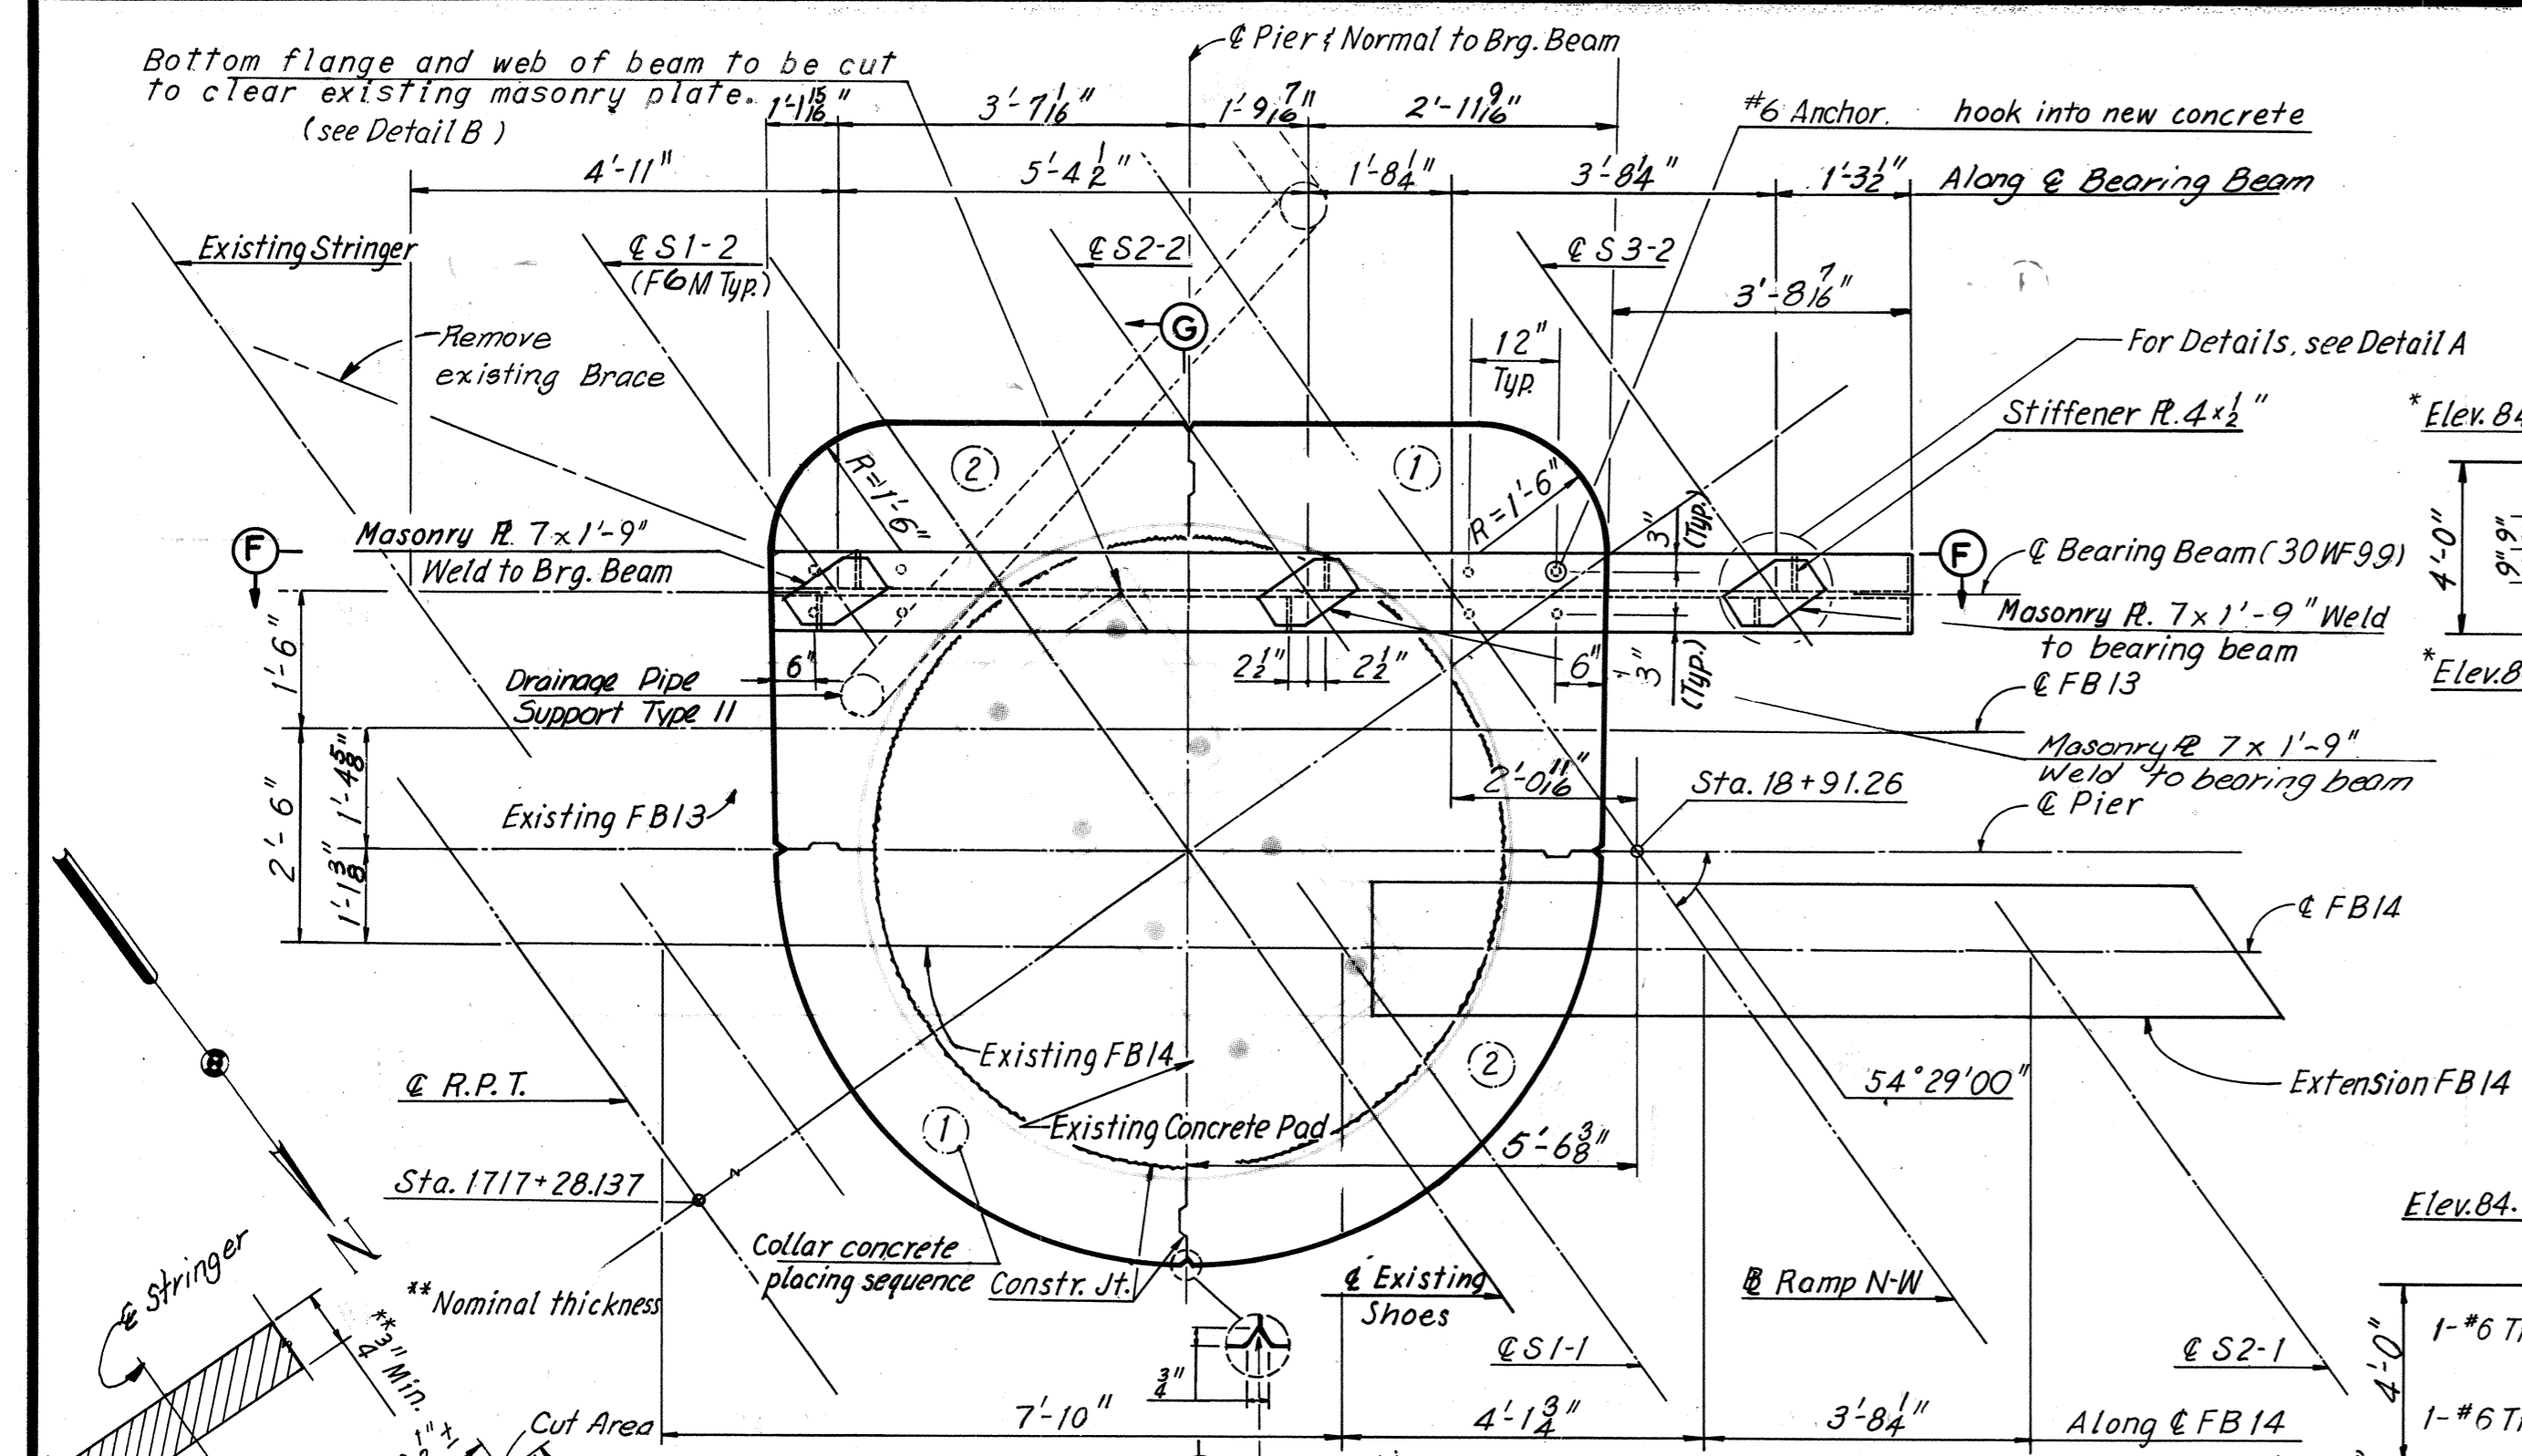 ℄ Pier & Normal to Brg. Beam
Bottom flange and web of beam to be cut
to clear existing masonry plate.
(see Detail B)
1'-1 15/16"
3'-7 1/16"
1'-9 7/16"
2'-11 9/16"
#6 Anchor. hook into new concrete
4'-11"
5'-4 1/2"
1'-8 1/4"
3'-8 1/4"
1'-3 1/2"
Along ℄ Bearing Beam
Existing Stringer
℄ S1-2
(F6M Typ.)
℄ S2-2
℄ S3-2
3'-8 7/16"
G
Remove
existing Brace
12"
Typ.
For Details, see Detail A
Stiffener ℞. 4 x 1/2"
*Elev. 84
2
1
R=1'-6"
R=1'-6"
3"
(Typ.)
4'-0"
9" 9"
F
Masonry ℞. 7 x 1'-9"
Weld to Brg. Beam
F
℄ Bearing Beam (30WF99)
Masonry ℞. 7 x 1'-9" Weld
to bearing beam
1'-6"
6"
2 1/2"
2 1/2"
6"
3"
(Typ.)
Drainage Pipe
Support Type II
℄ FB13
*Elev. 8
Masonry ℞ 7 x 1'-9"
Weld to bearing beam
2'-6"
1'-4 5/8"
1'-1 3/8"
Existing FB13
2'-0 11/16"
Sta. 18+91.26
℄ Pier
℄ FB14
Existing FB14
2
54°29'00"
Extension FB14
℄ R.P.T.
1
Existing Concrete Pad
5'-6 3/8"
Sta. 1717+28.137
Elev. 84.
N
℄ Stringer
Collar concrete
placing sequence
Constr. Jt.
℄ Existing
Shoes
℄ Ramp N-W
**Nominal thickness
**3/4" Min.
3/4"
℄ S1-1
℄ S2-1
4'-0"
1-#6 T
Cut Area
7'-10"
4'-1 3/4"
3'-8 1/4"
Along ℄ FB14
1-#6 T